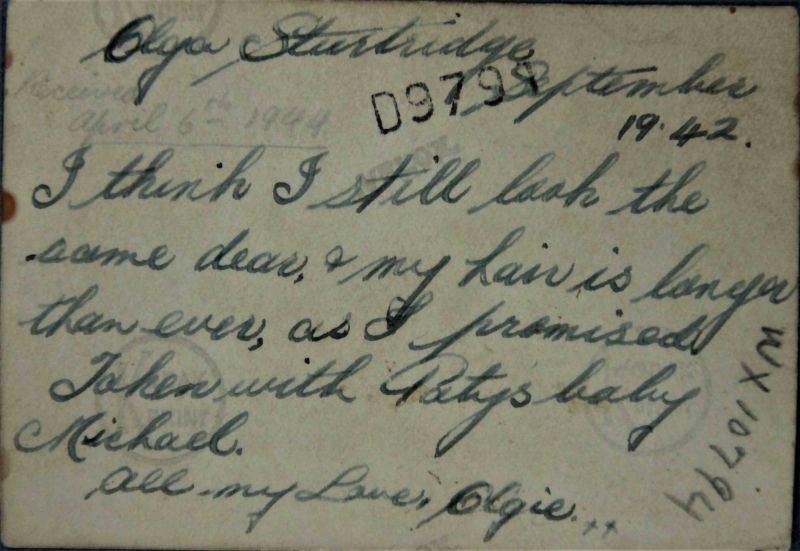 Olga Sturtridge
September
D9794
19.42.
Received
April 6th 1944
I think I still look the
same dear, & my hair is longer
than ever, as I promised
Taken with Patys baby
Michael.
All my Love, Olgie.
WX10794